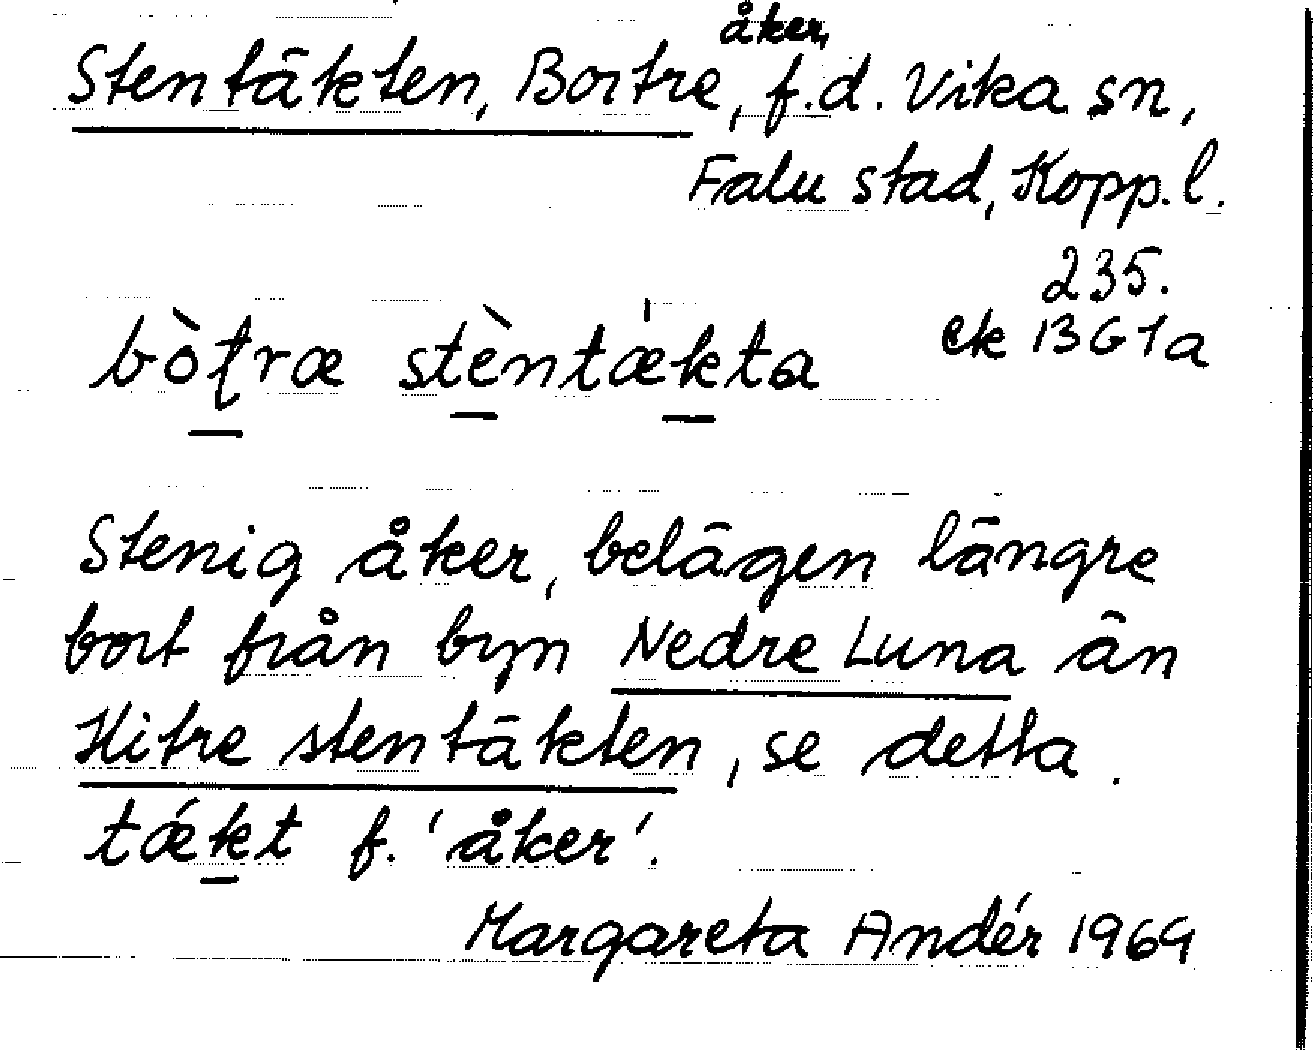 Stentäkten, Bortre, åker, f.d. Vika sn,
Falu stad, Kopp.l.
235.
ek 13G1a
bò̀ʈræ stèntækta
Stenig åker, belägen längre
bort från byn Nedre Luna än
Hitre stentäkten, se detta.
tǽkt f. 'åker'.
Margareta Andér 1969